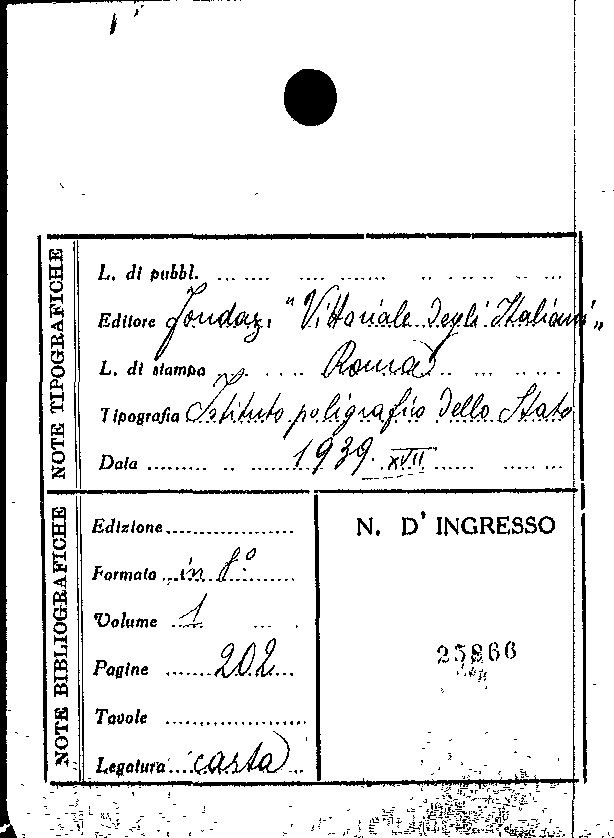 NOTE TIPOGRAFICHE
L. di pubbl.
Editore Fondaz. "Vittoriale degli Italiani"
L. di stampa Roma
Tipografia Istituto poligrafico dello Stato
Data 1939. XVII
NOTE BIBLIOGRAFICHE
Edizione
Formato in 8°
Volume 1
Pagine 202
Tavole
Legatura carta
N. D'INGRESSO
25866